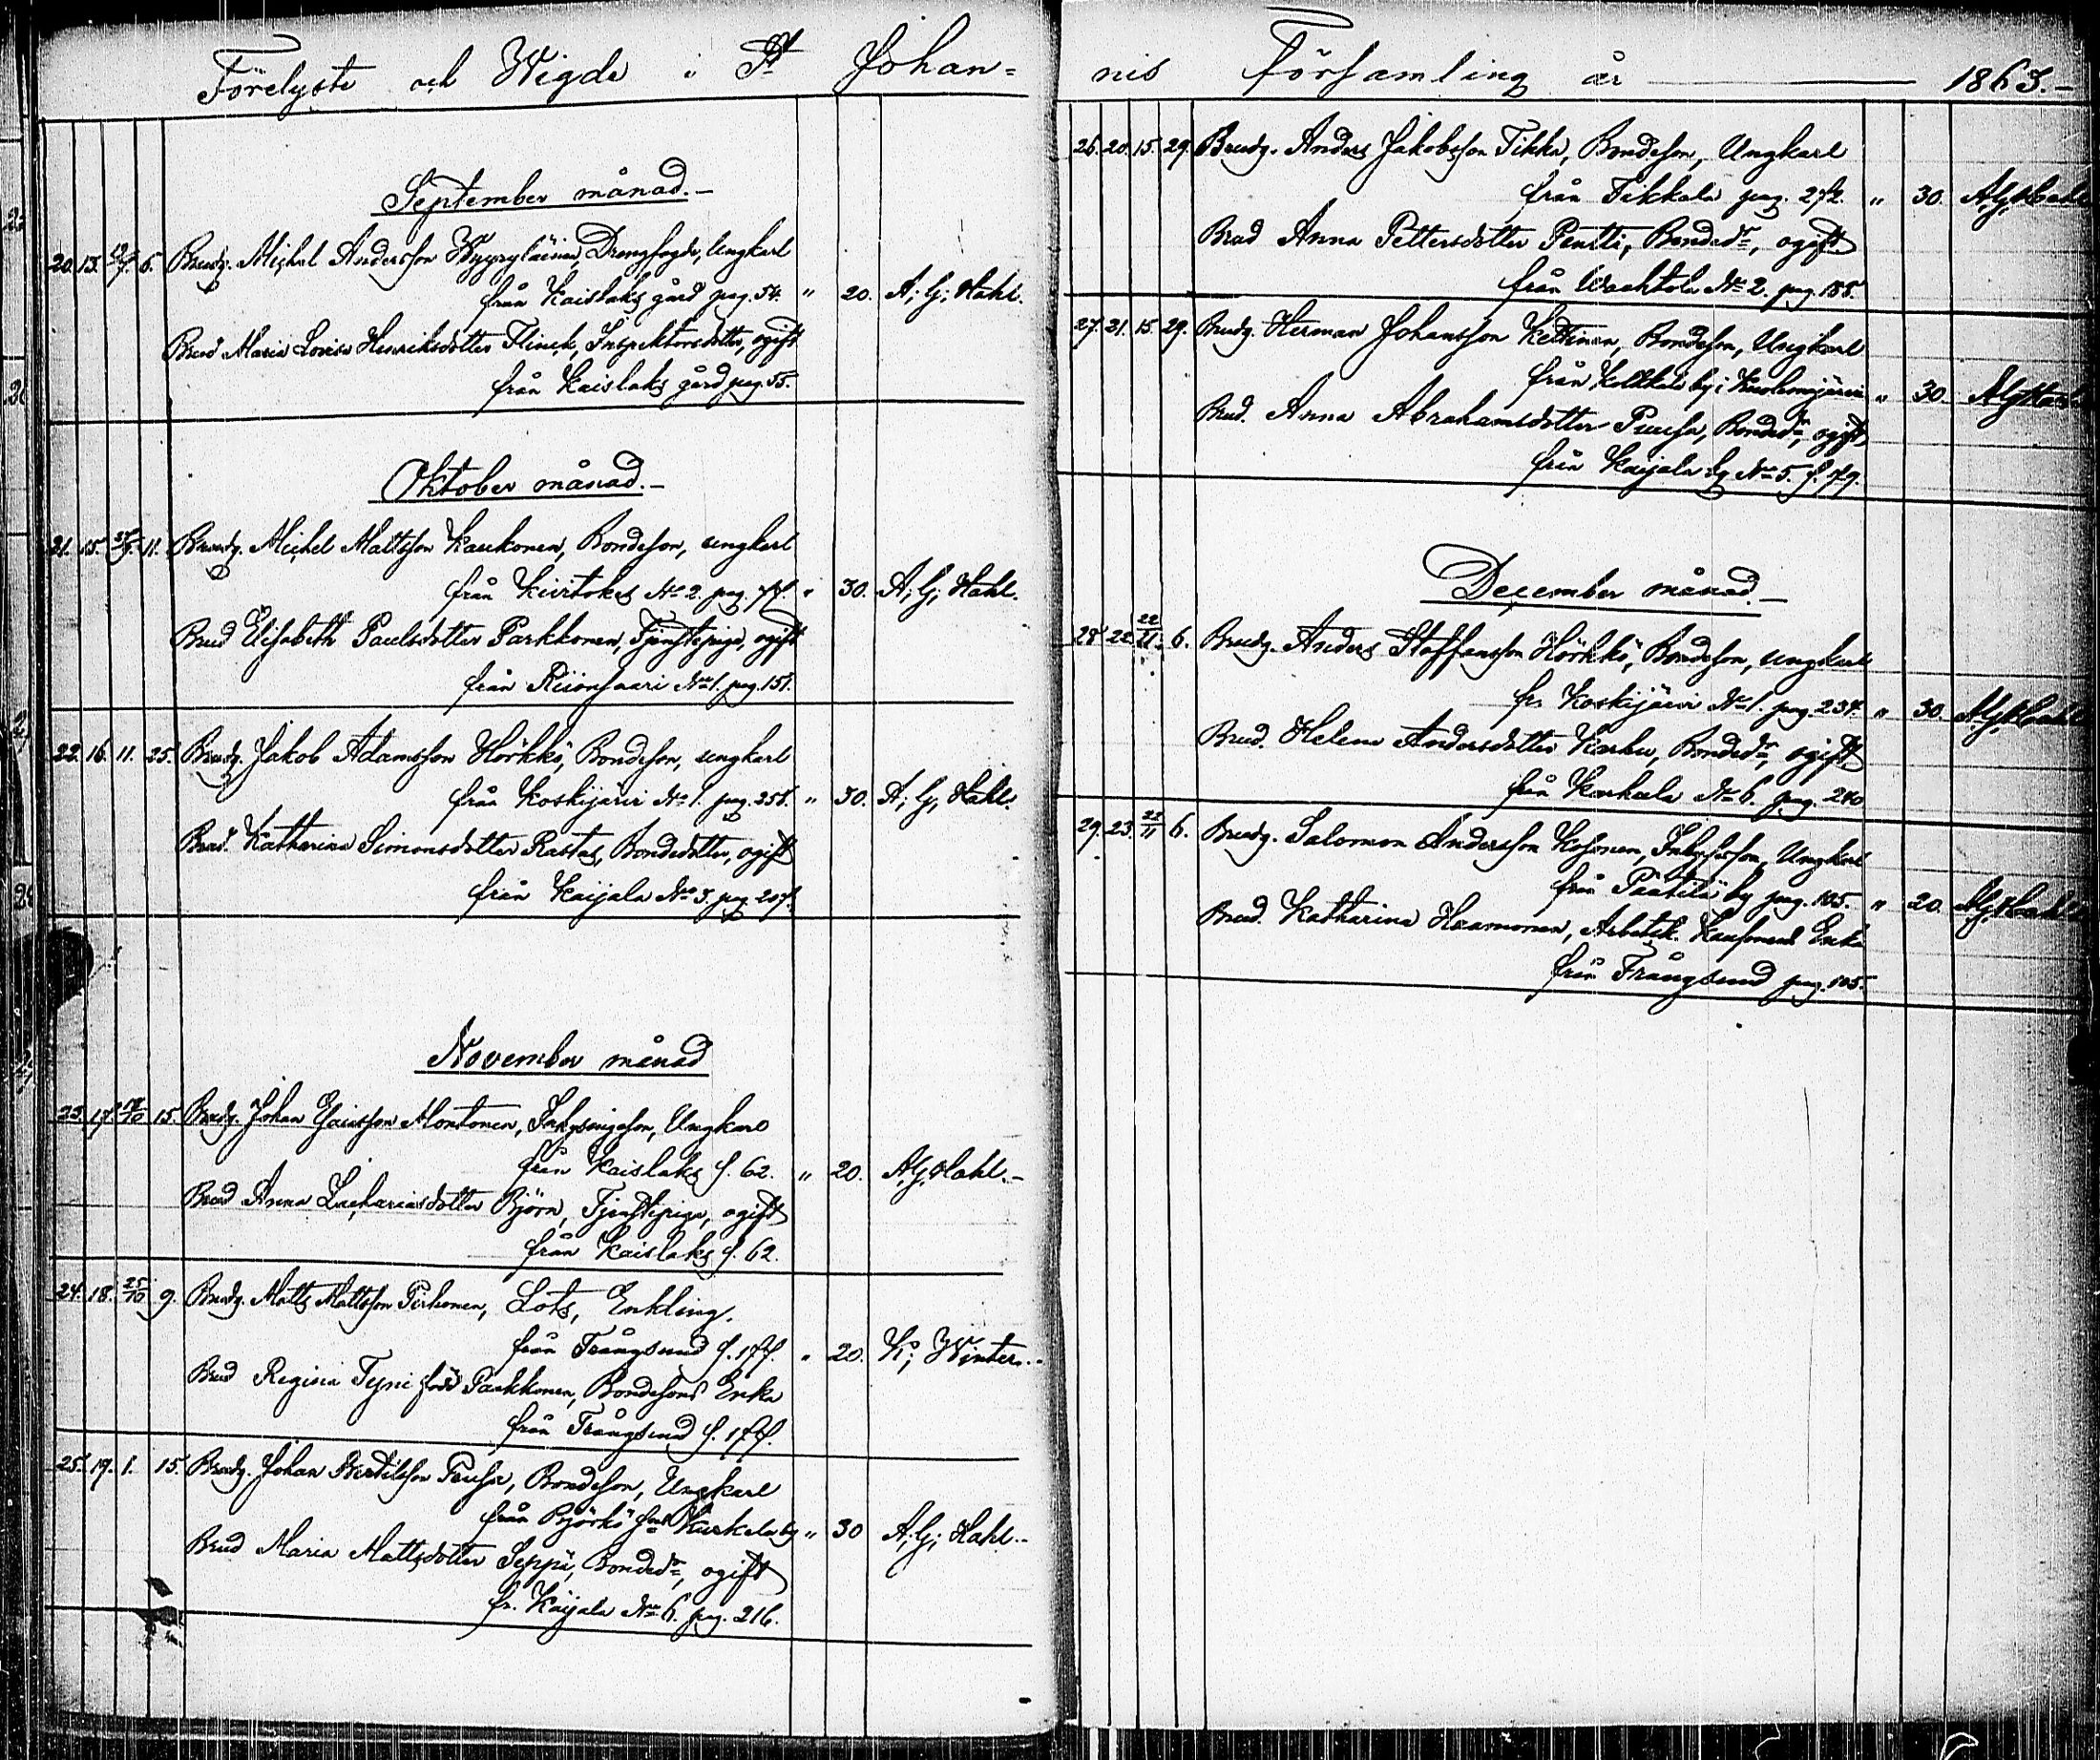 Förelyste och Wigde i St Johan=
September månad.-
20. 13. 6. Brudg. Michel Andersson Wyyryläinen, Drengfogde, Ungkarl
från Kaislaks gård pag. 54. " 20. A; G; Hahl.
Brud Maria Lovisa Henriksdotter Flinck, Inspektorsdotter, ogift
från Kaislaks gård pag. 55.
Oktober månad.-
21. 15. 11. Brudg. Michel Mattsson Kaukonen, Bondeson, ungkarl
från Kiirtokes No 2. pag. 77. " 30. A; G; Hahl.
Brud Elisabeth Paulsdotter Parkkonen, Tjenstepiga, ogift
från Riionsaari No 1. pag. 151.
22. 16. 11. 25. Brudg. Jakob Adamsson Hörkkö, Bondeson, ungkarl
från Koskijärvi No 1. pag. 251. " 30. A; G; Hahl.
Brud. Katharina Simonsdotter Rastas, Bondedotter, ogift
från Kaijala No 3. pag. 207.
November månad
23. 17. 15. Brudg. Johan Montonen, Ungkarl
från Kaislaks f. 62. " 20. A. G. Hahl.-
Brud Anna Zachariasdotter Björn, Tjenstepiga, ogift
från Kaislaks f. 62.
24. 18. 25/10 9. Brudg. Matts Mattsson Pirhonen, Lots, Enkling.
från Trångsund f. 177. " 20. K; Winter..
Brud Regina Tyni född Paakkonen, Bondesons Enka
från Trångsund f. 177.
25. 19. 1. 15. Brudg. Johan Bertilsson Puusa, Bondeson, Ungkarl
från Björkö Kurkela by " 30 A; G; Hahl..
Brud Maria Mattsdotter Seppä, Bonded:r, ogift
fr. Kaijala No 6. pag. 216.
nis Församling år 1863.-
26. 20. 15. 29. Brudg. Anders Jakobsson Tikka, Bondeson, Ungkarl
från Tikkala pag. 272. " 30. A. G. Hahl
Brud Anna Pettersdotter Pentti, Bonded:r, ogift
från Waahtola No 2. pag. 188.
27. 21. 15. 29. Brudg. Herman Johansson Kettinen, Bondeson, Ungkarl
från by i Kuolemajärvi " 30. A G Hahl
Brud. Anna Abrahamsdotter Puusa, Bonded:r, ogift
från Kaijala by No 5. f. 179.
December månad.-
28. 22. 22/11. 6. Brudg. Anders Staffansson Hörkkö, Bondeson, ungkarl
fr. Koskijärvi No 1. pag. 237. " 30. A G Hahl
Brud. Helena Andersdotter Karhu, Bonded:r, ogift
från Karhula No 6. pag. 240
29. 23. 22/11 6. Brudg. Salomon Andersson Kosonen, Inhysesson, Ungkarl
från Päätilä by pag. 105. " 20. A G Hahl
Brud. Katharina Haamonen, Arbetsk. Enka
från Trångsund pag. 105.